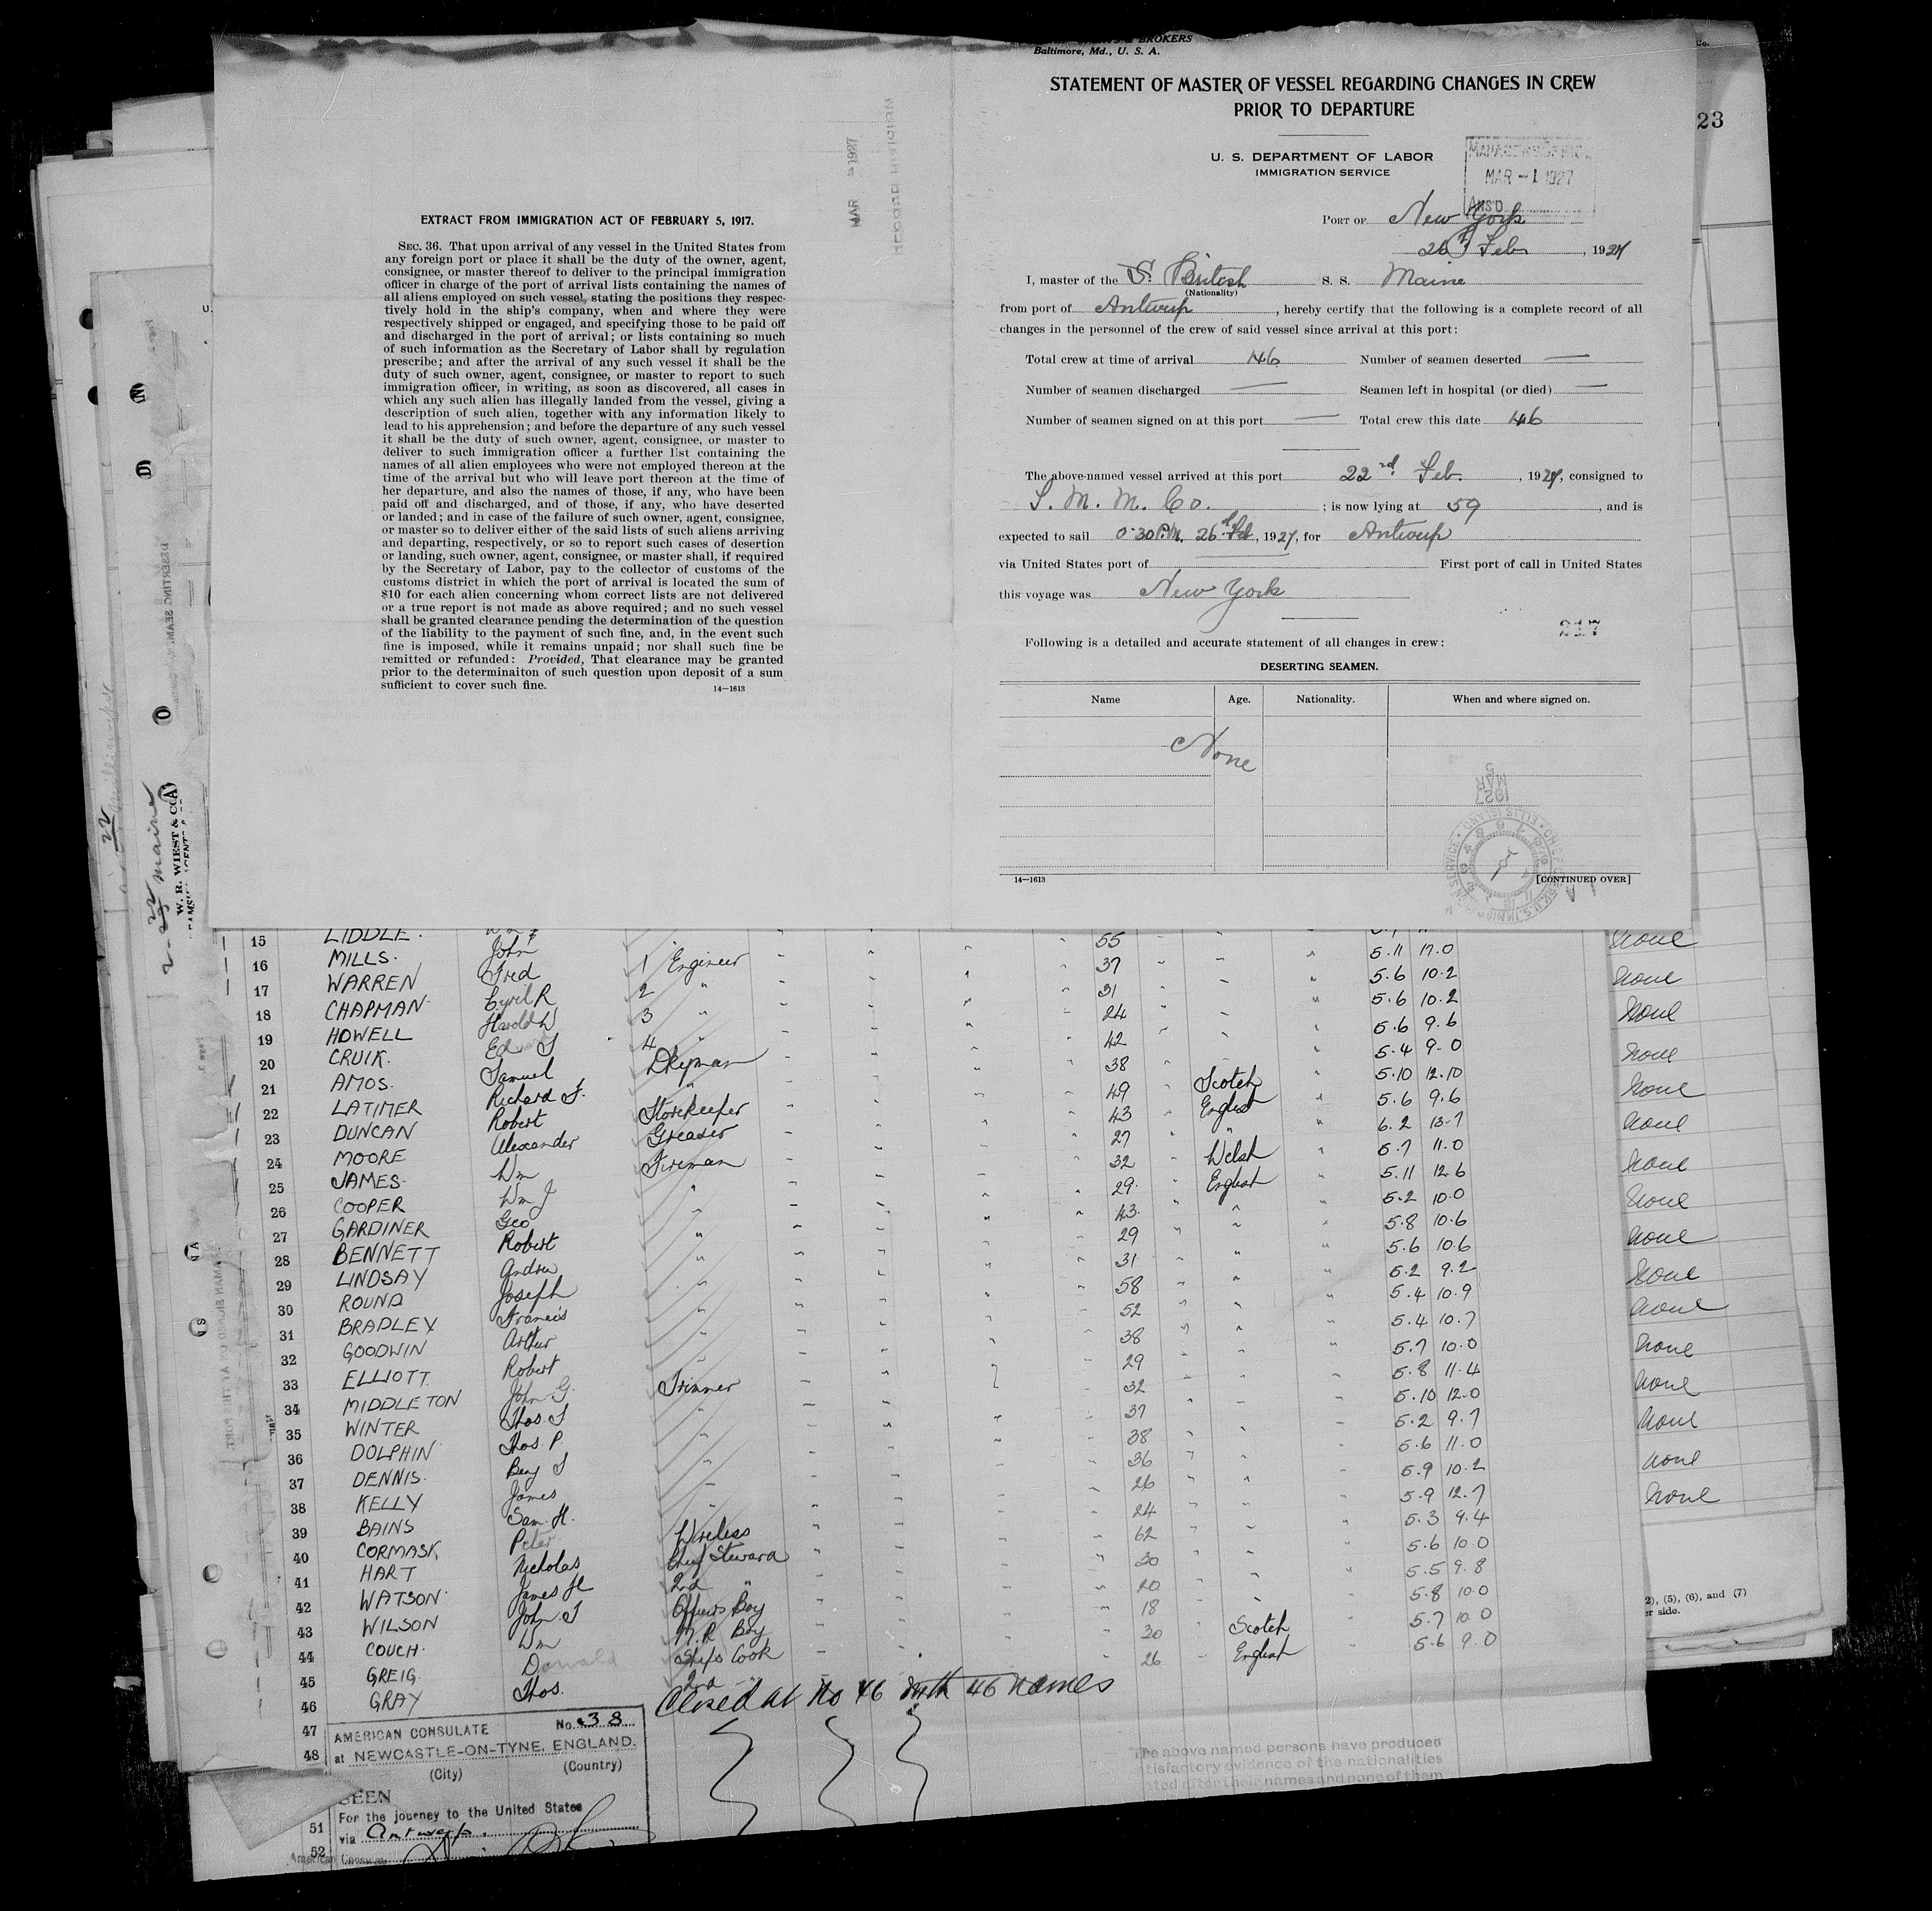 EXTRACT FROM IMMIGRATION ACT OF FEBRUARY 5, 1917.
SEC. 36. That upon arrival of any vessel in the United States from
any foreign port or place it shall be the duty of the owner, agent,
consignee, or master thereof to deliver to the principal immigration
officer in charge of the port of arrival lists containing the names of
all aliens employed on such vessel, stating the positions they respec-
tively hold in the ship's company, when and where they were
respectively shipped or engaged, and specifying those to be paid off
and discharged in the port of arrival; or lists containing so much
of such information as the Secretary of Labor shall by regulation
prescribe; and after the arrival of any such vessel it shall be the
duty of such owner, agent, consignee, or master to report to such
immigration officer, in writing, as soon as discovered, all cases in
which any such alien has illegally landed from the vessel, giving a
description of such alien, together with any information likely to
lead to his apprehension; and before the departure of any such vessel
it shall be the duty of such owner, agent, consignee, or master to
deliver to such immigration officer a further list containing the
names of all alien employees who were not employed thereon at the
time of the arrival but who will leave port thereon at the time of
her departure, and also the names of those, if any, who have been
paid off and discharged, and of those, if any, who have deserted
or landed; and in case of the failure of such owner, agent, consignee,
or master so to deliver either of the said lists of such aliens arriving
and departing, respectively, or so to report such cases of desertion
or landing, such owner, agent, consignee, or master shall, if required
by the Secretary of Labor, pay to the collector of customs of the
customs district in which the port of arrival is located the sum of
$10 for each alien concerning whom correct lists are not delivered
or a true report is not made as above required; and no such vessel
shall be granted clearance pending the determination of the question
of the liability to the payment of such fine, and, in the event such
fine is imposed, while it remains unpaid; nor shall such fine be
remitted or refunded: Provided, That clearance may be granted
prior to the determinaiton of such question upon deposit of a sum
sufficient to cover such fine.
14—1613
BROKERS
Baltimore, Md., U. S. A.
STATEMENT OF MASTER OF VESSEL REGARDING CHANGES IN CREW
PRIOR TO DEPARTURE
U. S. DEPARTMENT OF LABOR
IMMIGRATION SERVICE
MANAGER'S OFFICE
MAR -1 1927
ANS'D
PORT OF New York
26 Feb, 1927
I, master of the S. British S. S. Maine
(Nationality)
from port of Antwerp, hereby certify that the following is a complete record of all
changes in the personnel of the crew of said vessel since arrival at this port:
Total crew at time of arrival 46 Number of seamen deserted —
Number of seamen discharged — Seamen left in hospital (or died) —
Number of seamen signed on at this port — Total crew this date 46
The above-named vessel arrived at this port 22nd Feb., 1927, consigned to
S. M. M. Co. ; is now lying at 59, and is
expected to sail 0-30 P.M. 26 Feb, 1927, for Antwerp
via United States port of First port of call in United States
this voyage was New York
217
Following is a detailed and accurate statement of all changes in crew:
DESERTING SEAMEN.
Name Age. Nationality. When and where signed on.
None
1927 MAR 5
14—1613 [CONTINUED OVER]
23
2-22 maine
W. R. WIEST & CO
15 LIDDLE. 55 5.11 17.0 none
16 MILLS. John 1 Engineer 37 5.6 10.2
17 WARREN Fred 2 " 31 5.6 10.2 none
18 CHAPMAN Cyril R 3 " 24 5.6 9.6 none
19 HOWELL Harold W 4 42 5.4 9.0
20 CRUIK. Ed S Dkyman 38 5.10 12.10 none
21 AMOS. Samuel " 49 Scotch 5.6 9.6 none
22 LATIMER Richard F. Storekeeper 43 English 6.2 13.7 none
23 DUNCAN Robert Greaser 27 " 5.7 11.0
24 MOORE Alexander Fireman 32 Welsh 5.11 12.6 none
25 JAMES. Wm " 29 English 5.2 10.0
26 COOPER Wm J " 43 " 5.8 10.6 none
27 GARDINER Geo " 29 " 5.6 10.6 none
28 BENNETT Robert " 31 " 5.2 9.2
29 LINDSAY Andrew " 58 " 5.4 10.9 none
30 ROUND Joseph " 52 " 5.4 10.7 none
31 BRADLEY Francis " 38 " 5.7 10.0
32 GOODWIN Arthur " 29 " 5.8 11.4 none
33 ELLIOTT Robert Trimmer 32 " 5.10 12.0 none
34 MIDDLETON John G. " 37 " 5.2 9.7
35 WINTER Thos. S " 38 " 5.6 11.0 none
36 DOLPHIN Thos. P. " 36 " 5.9 10.2 none
37 DENNIS. Benj S " 26 " 5.9 12.7
38 KELLY James " 24 " 5.3 9.4 none
39 BAINS Sam. H. Wireless 62 " 5.6 10.0
40 CORMASK Peter Chief Steward 30 " 5.5 9.8
41 HART Nicholas 2nd " 20 " 5.8 10.0
42 WATSON James H Officers Boy 18 " 5.7 10.0
43 WILSON John S M.R. Boy 30 Scotch 5.6 9.0
44 COUCH. Wm Ships Cook 26 English
45 GREIG. Donald 2nd "
46 GRAY Thos.
Closed at No 46 with 46 names
47
48
AMERICAN CONSULATE No. 38
at NEWCASTLE-ON-TYNE, ENGLAND.
(City) (Country)
SEEN
For the journey to the United States
via Antwerp.
51
52
The above named persons have produced
satisfactory evidence of the nationalities
stated after their names and none of them
2), (5), (6), and (7)
er side.